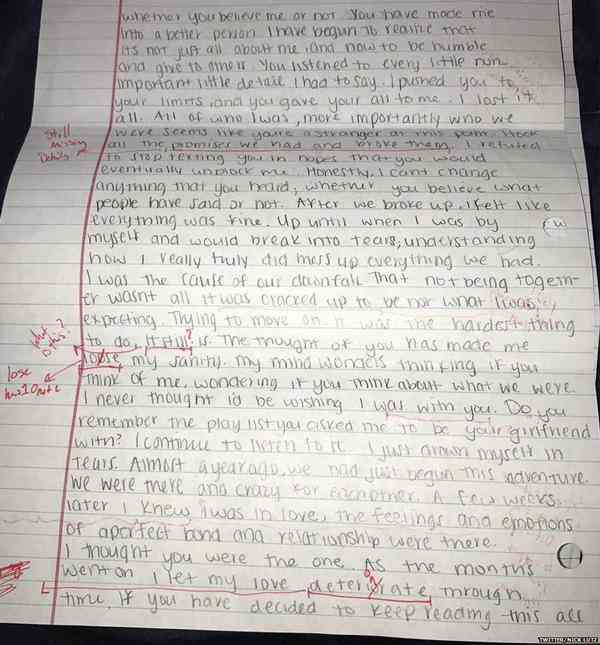 whether you believe me or not. You have made me
into a better person. I have begun to realize that
its not just all about me, and now to be humble
and give to others. You listened to every little
important little detail I had to say. I pushed you to
your limits, and you gave your all to me. I lost it
all. All of who I was, more importantly who we
were seems like youre a stranger at this point. I took
all the promises we had and broke them. I refused
to stop texting you in hopes that you would
eventually unblock me. Honestly, I cant change
anything that you heard, whether you believe what
people have said or not. After we broke up, I felt like
everything was fine. Up until when I was by
myself and would break into tears, understanding
how I really truly did mess up everything we had.
I was the cause of our downfall. That not being togeth-
er wasnt all it was cracked up to be nor what I was
expecting. Trying to move on it was the hardest thing
to do, it still is. The thought of you has made me
loose my sanity. my mind wonders thinking if you
think of me, wondering if you think about what we were.
I never thought id be wishing I was with you. Do you
remember the play list you asked me to be your girlfriend
with? I continue to listen to it. I just drown myself in
tears. Almost a year ago, we had just begun this adventure.
We were there and crazy for eachother. A few weeks
later I knew i was in love, the feelings and emotions
of a perfect bond and relationship were there.
I thought you were the one. As the months
went on I let my love deteriorate through
time. If you have decided to keep reading this all
Still
Missing
Details
What
is this?
?
lose
TWITTER/NICK LUTZ